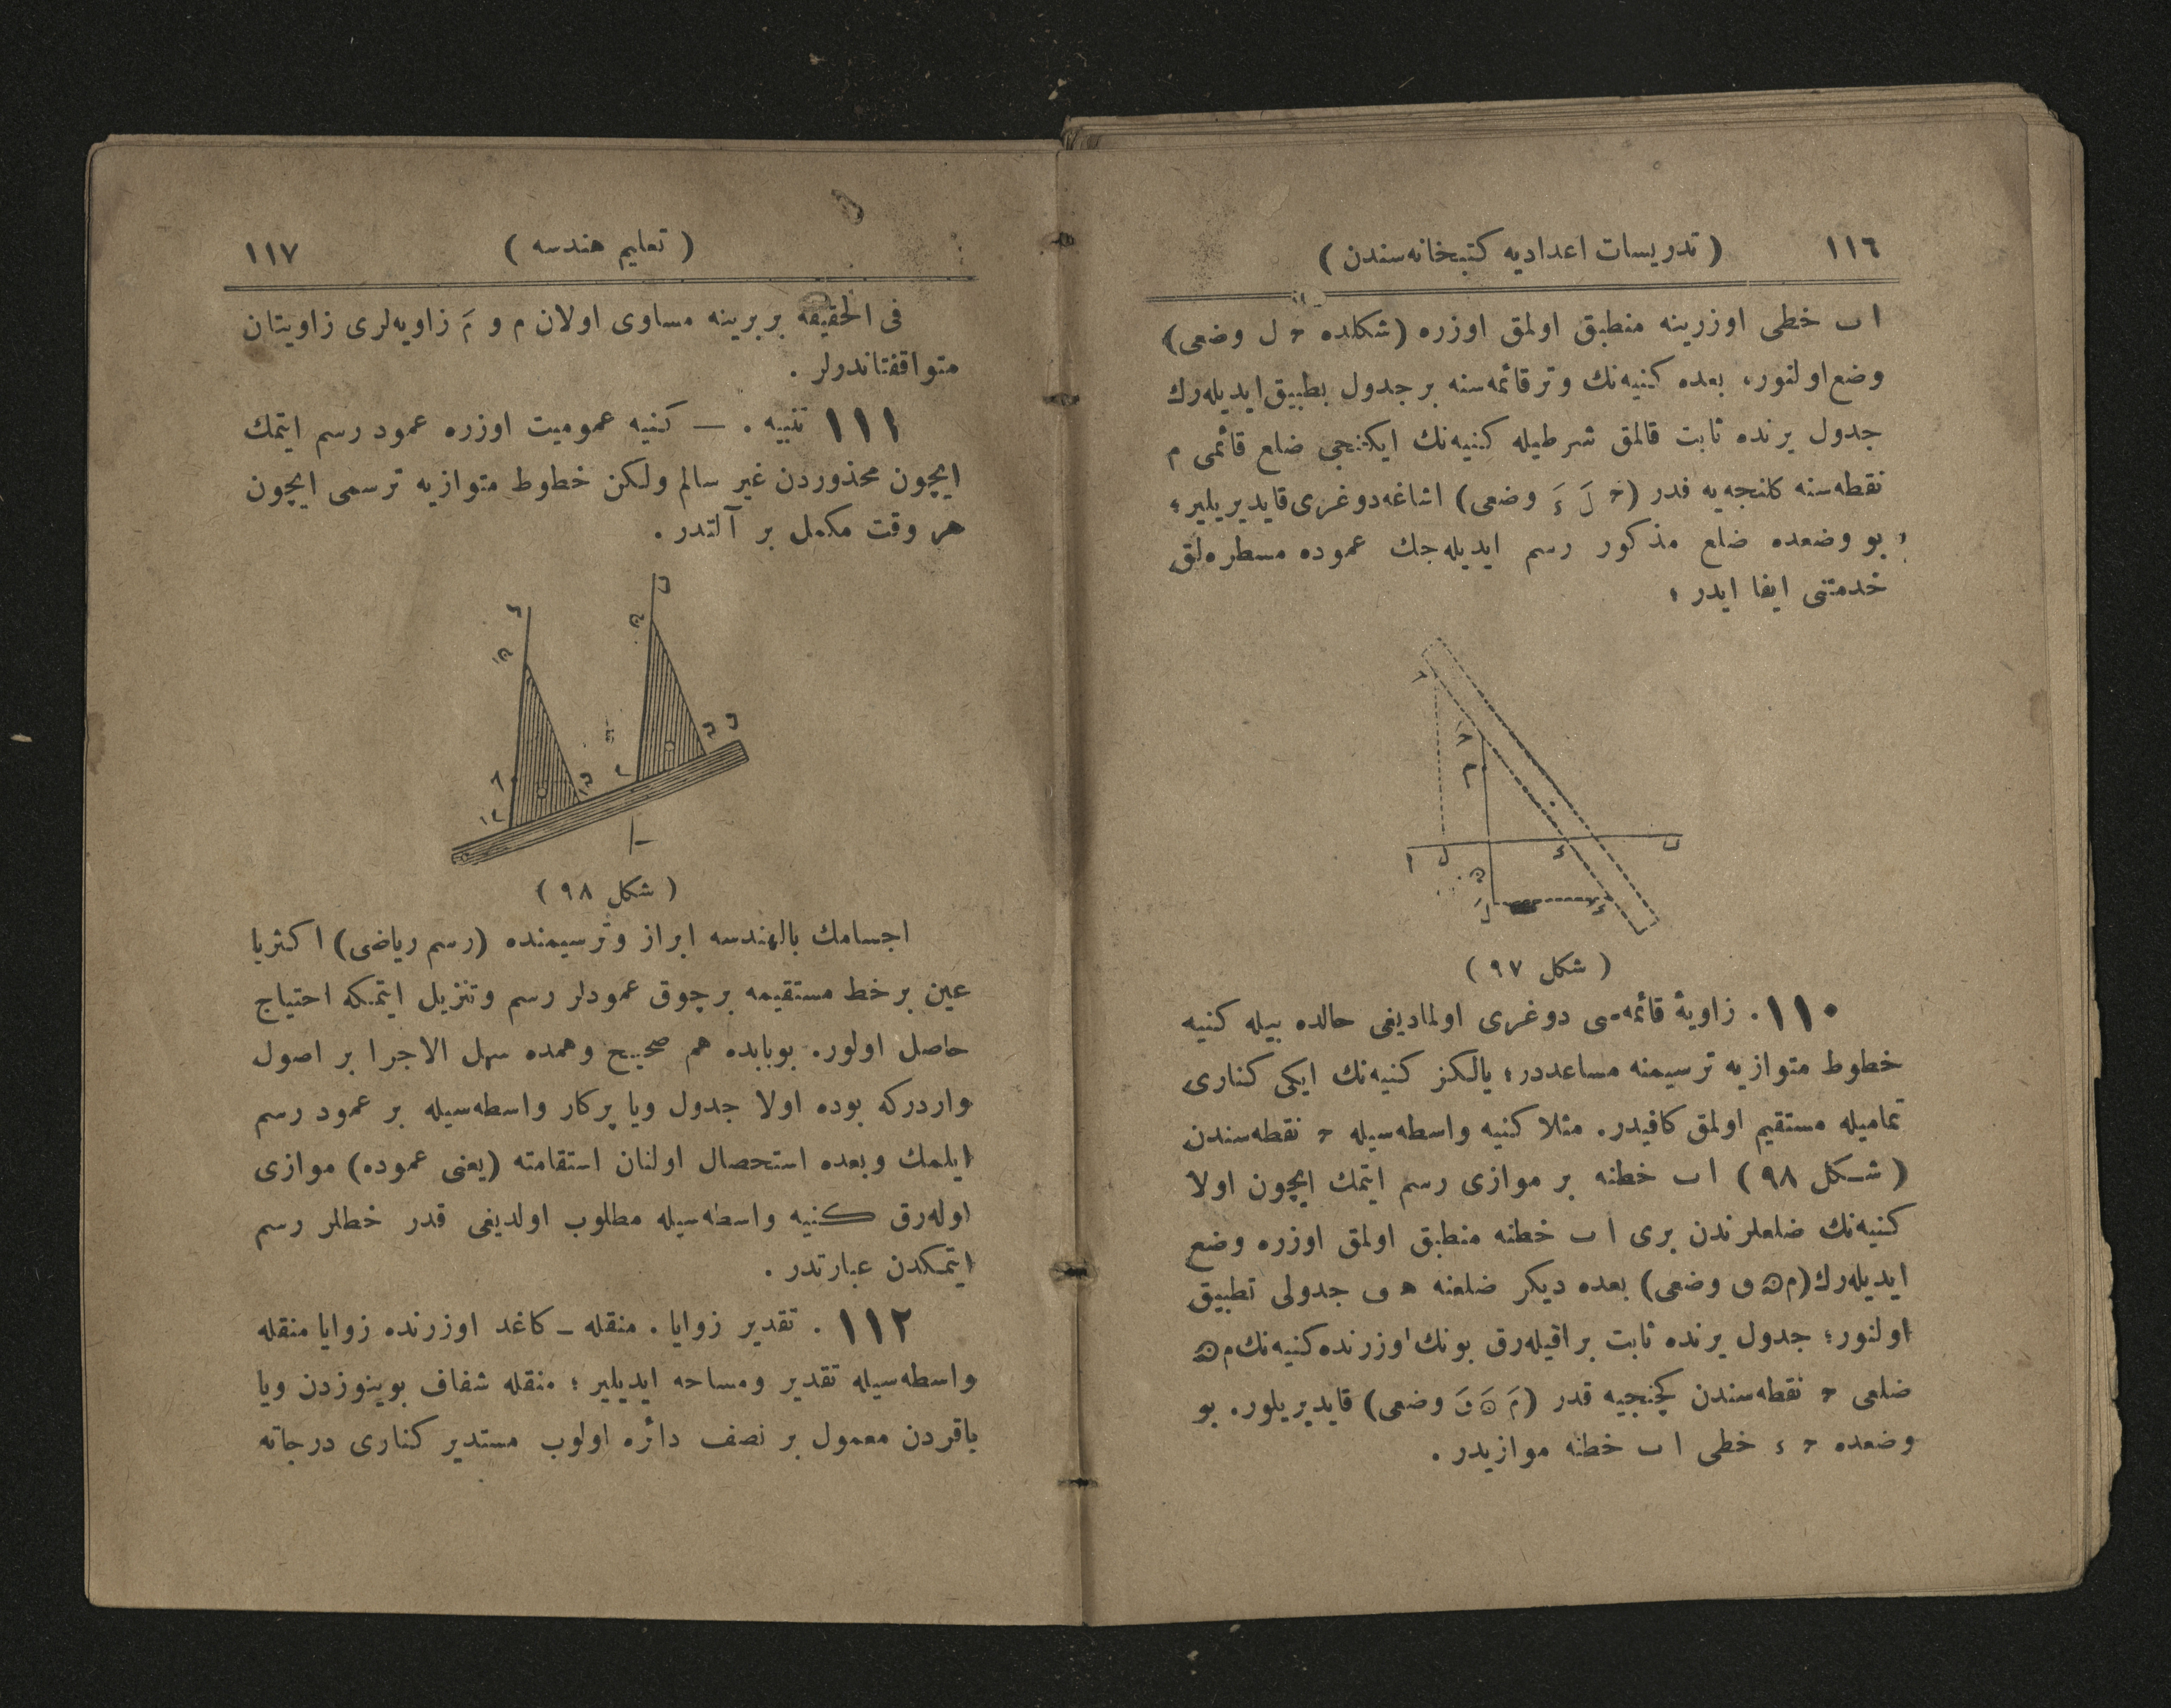 ١١٦ ( تدريسات اعداديه كتبخانه‌سندن )
ا ب خطى اوزرينه منطبق اولمق اوزره (شكلده ح ل وضعى)
وضع اولنور، بعده كنيه‌نك وتر قائمه‌سنه بر جدول بطبيق ايديله‌رك
جدول يرنده ثابت قالمق شرطيله كنيه‌نك ايكنجى ضلع قائمى م
نقطه‌سنه كلنجه‌يه قدر (حَ لَ ءَ وضعى) اشاغه دوغرى قايديريلير؛
بو وضعده ضلع مذكور رسم ايديله‌جك عموده مسطره‌لق
خدمتنى ايفا ايدر ؛
ح
حَ
م
ا ل ء ب
ه
لَ ءَ
( شكل ٩٧ )
١١٠. زاويهٔ قائمه‌سى دوغرى اولماديغى حالده بيله كنيه
خطوط متوازيه ترسيمنه مساعددر؛ يالكز كنيه‌نك ايكى كنارى
تماميله مستقيم اولمق كافيدر. مثلا كنيه واسطه‌سيله ح نقطه‌سندن
( شكل ٩٨ ) ا ب خطنه بر موازى رسم ايتمك ايچون اولا
كنيه‌نك ضلعلرندن برى ا ب خطنه منطبق اولمق اوزره وضع
ايديله‌رك (م ه ى وضعى) بعده ديكر ضلعنه ه ى جدولى تطبيق
اولنور؛ جدول يرنده ثابت براقيله‌رق بونك اوزرنده كنيه‌نك م ه
ضلعى ح نقطه‌سندن كچنجيه قدر (مَ هَ ىَ وضعى) قايديريلور. بو
وضعده ح ء خطى ا ب خطنه موازيدر .
( تعليم هندسه ) ١١٧
فى الحقيقه بربرينه مساوى اولان م و مَ زاويه‌لرى زاويتان
متواقفتاندولر .
١١١ تنبيه . — كنيه عموميت اوزره عمود رسم ايتمك
ايچون محذوردن غير سالم ولكن خطوط متوازيه ترسمى ايچون
هر وقت مكمل بر آلتدر .
( شكل ٩٨ )
اجسامك بالهندسه ابراز وترسيمنده (رسم رياضى) اكثريا
عين بر خط مستقيمه بر چوق عمودلر رسم وتنزيل ايتمكه احتياج
حاصل اولور. بوبابده هم صحيح وهمده سهل الاجرا بر اصول
واردركه بوده اولا جدول ويا پركار واسطه‌سيله بر عمود رسم
ايلمك وبعده استحصال اولنان استقامته (يعنى عموده) موازى
اوله‌رق كنيه واسطه‌سيله مطلوب اولديغى قدر خطلر رسم
ايتمكدن عبارتدر .
١١٢ . تقدير زوايا . منقله ـ كاغد اوزرنده زوايا منقله
واسطه‌سيله تقدير ومساحه ايديلير ؛ منقله شفاف بوينوزدن ويا
باقردن معمول بر نصف دائره اولوب مستدير كنارى درجاته